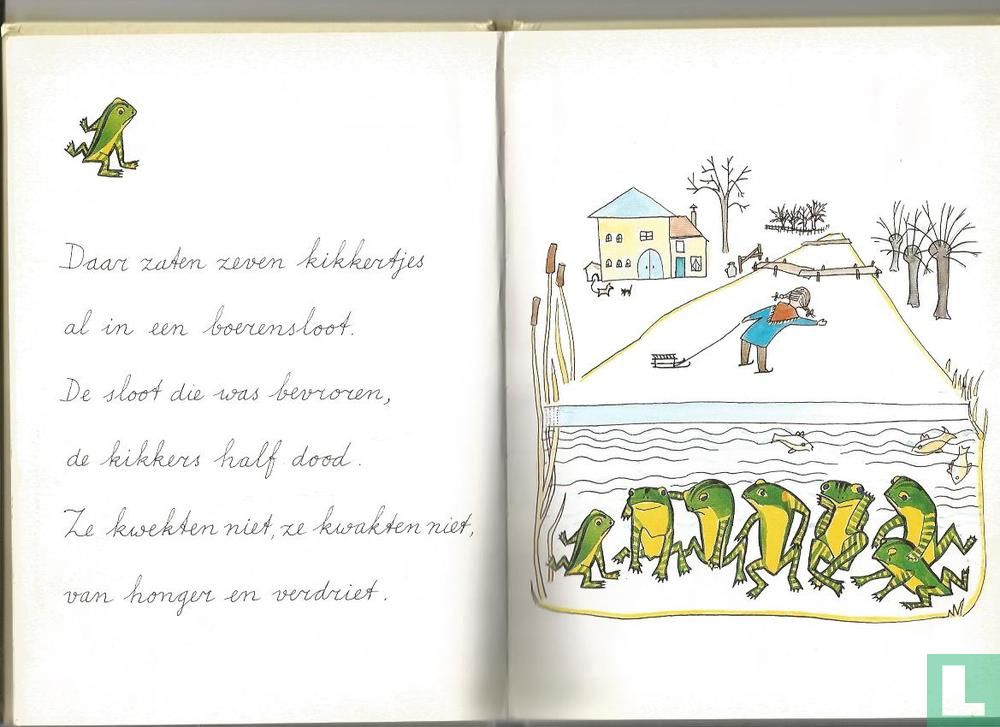 Daar zaten zeven kikkertjes
al in een boerensloot.
De sloot die was bevroren,
de kikkers half dood.
Ze kwekten niet, ze kwakten niet,
van honger en verdriet.
L